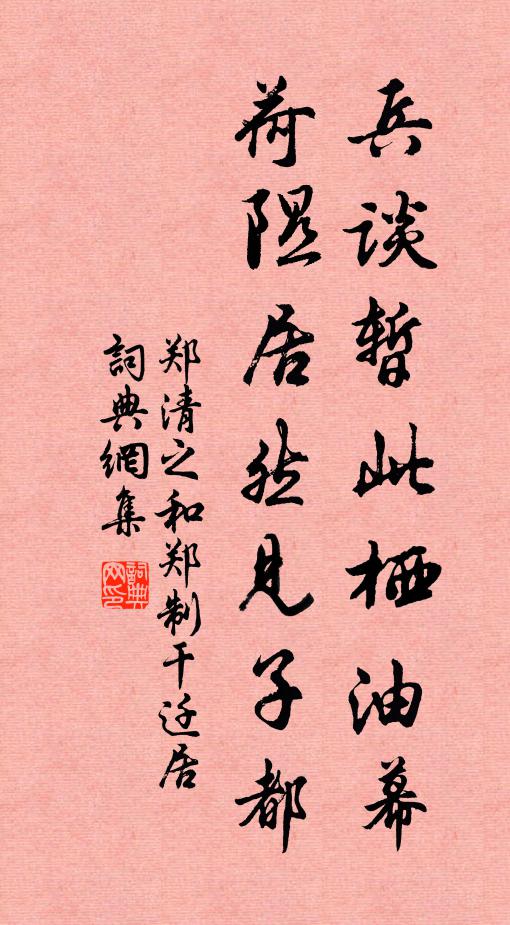 兵谈暫此栖油幕
荷隰居然见子都
郑清之和郑制干迁居
詞典網集
詞典網印